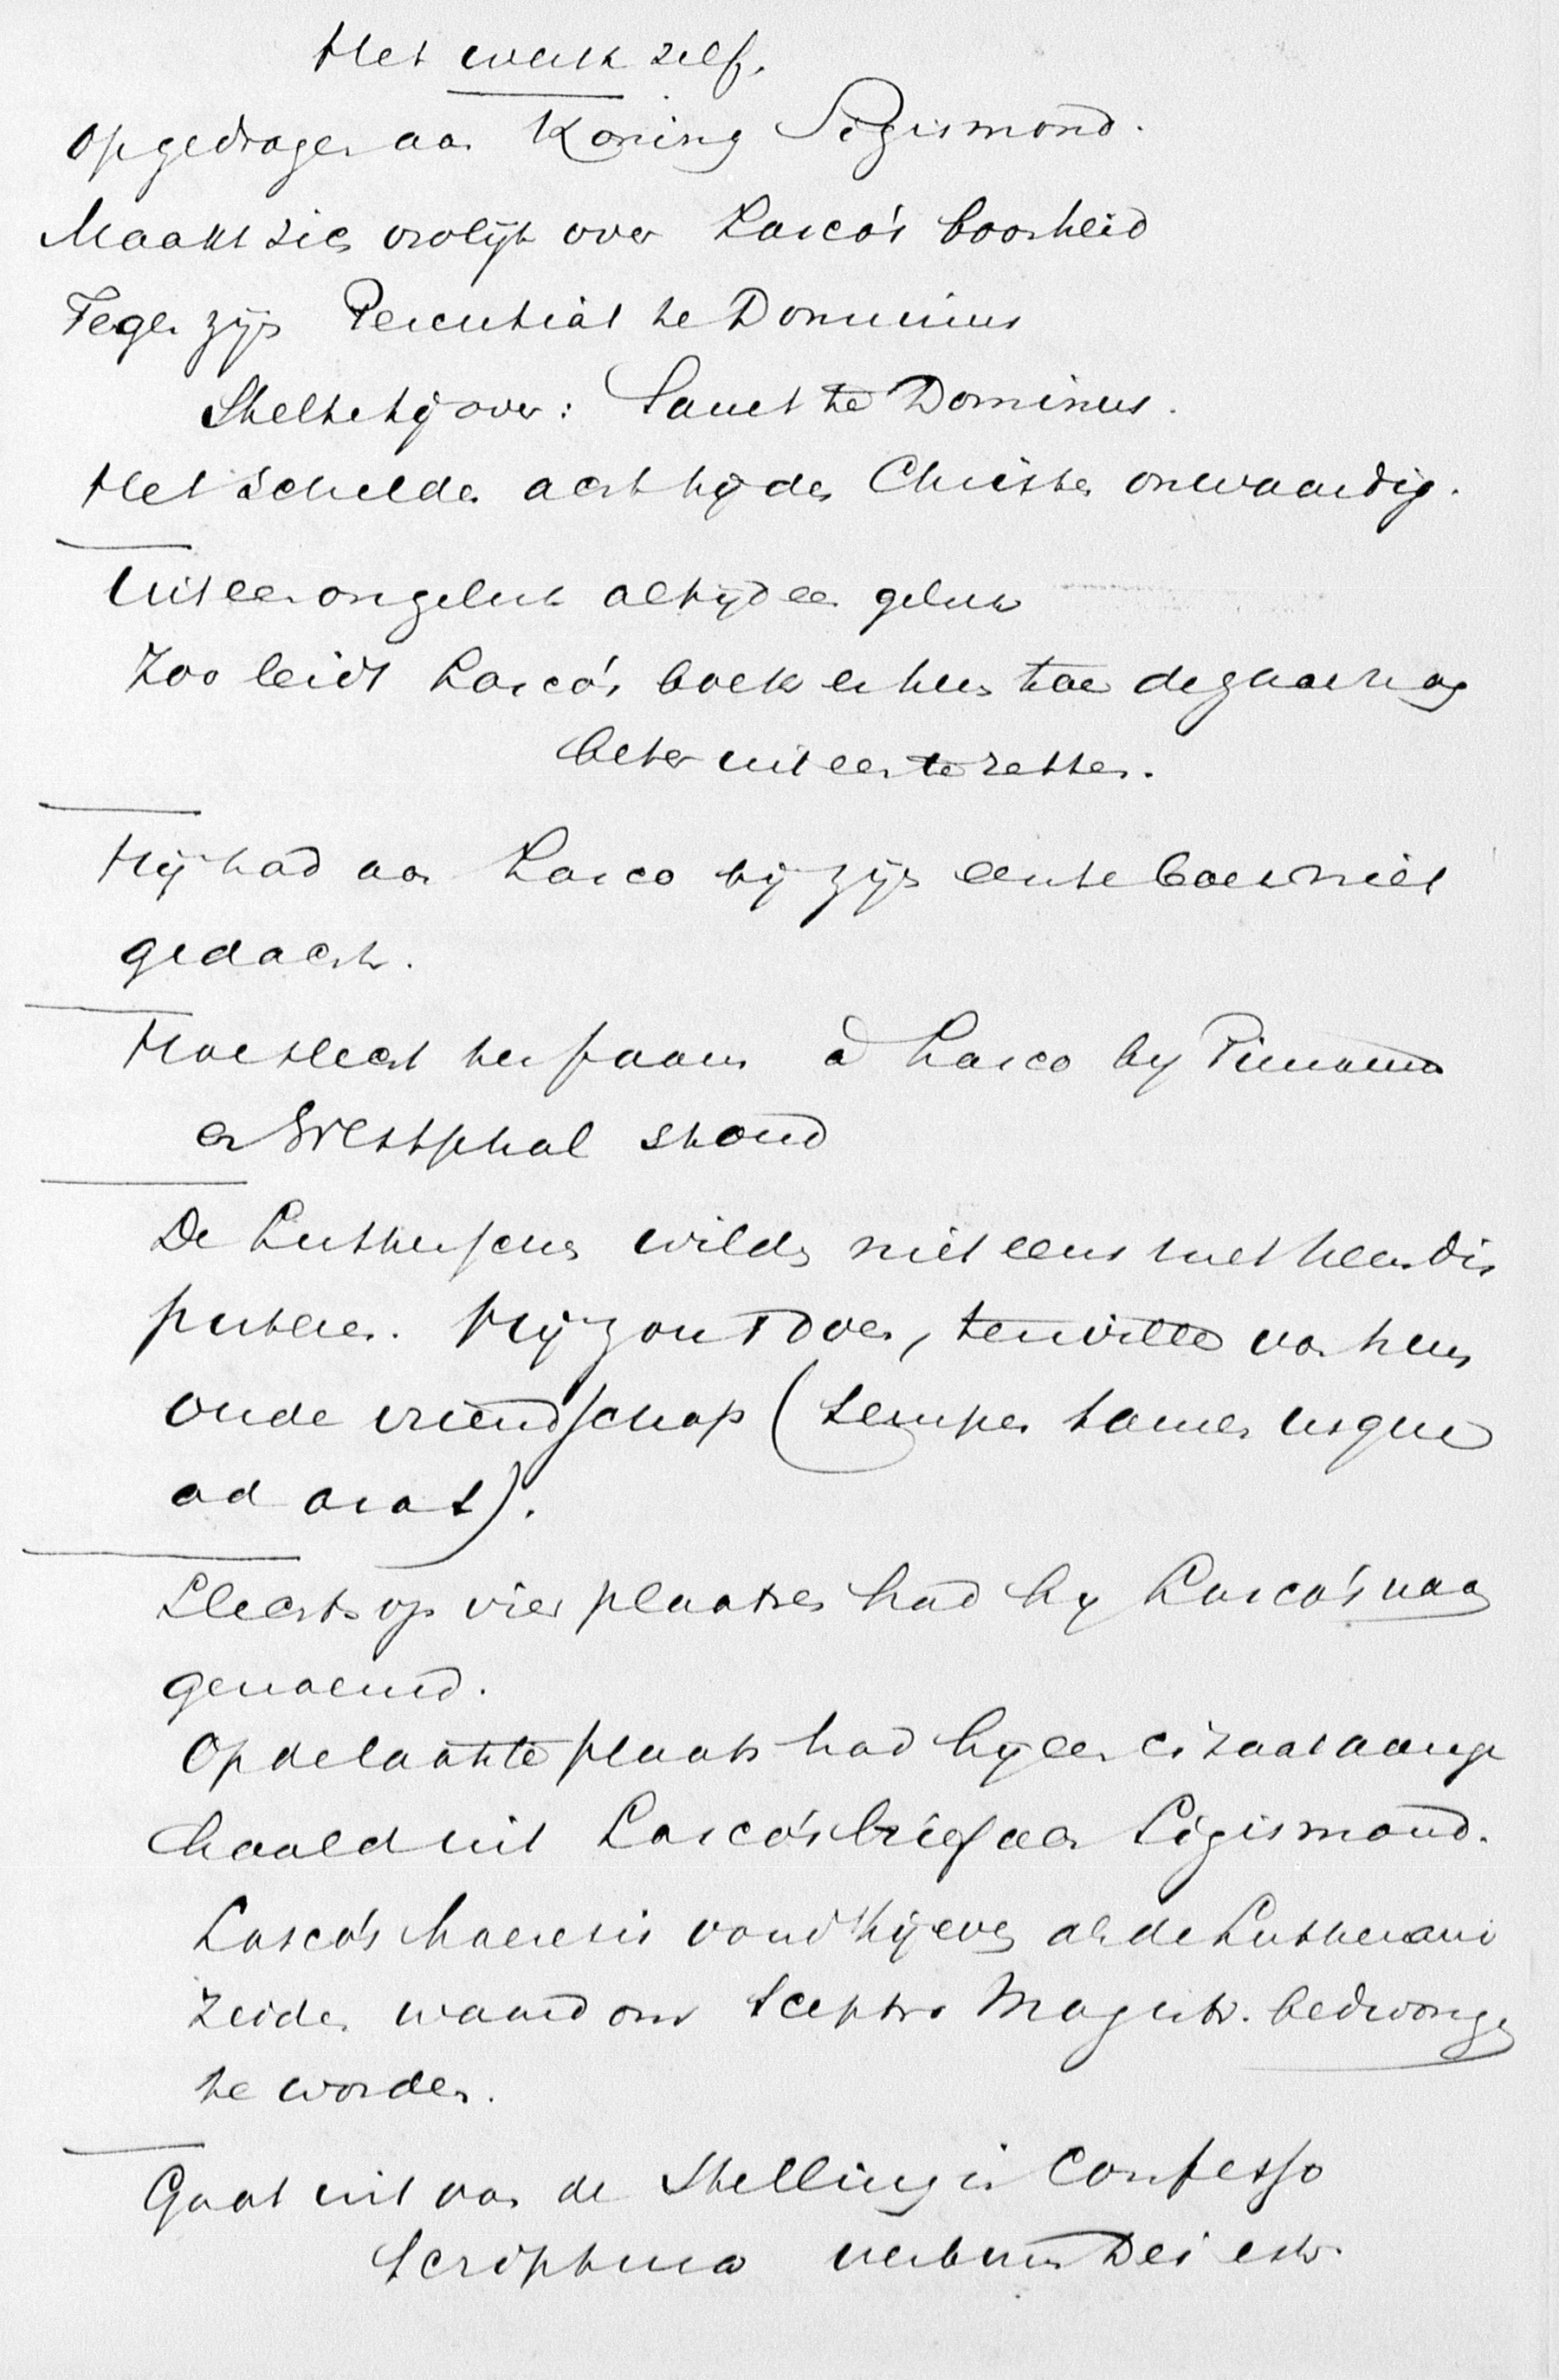 Het werk zelf.
Opgedragen aan Koning Sigismond.
Maakt zich vrolijk over Lasco's boosheid
Tegen zijn Percutiat te Dominus
Stelt hij over: Sanet te Dominus.
Het schelden acht hij den Christen onwaardig.
Uit een ongeluk altijd een geluk
Zoo leidt Lasco's boek er hem toe de zaak nog
beter uit een te zetten.
Hij had aan Lasco bij zijn eerste boek niet
gedacht.
Hoe slecht de faam à Lasco by
en Westphal stond
De Lutherschen wilden niet eens met hem dis
puteren. Hij zou 't doen, ter wille van hun
oude vriendschap (semper tamen usque
ad aras).
Slechts op vier plaatsen had hy Lasco's naam
genoemd.
Op de laatste plaats had hij een citaat aange
haald uit Lasco's brief aan Sigismond.
Lasco's haeresis vond hij even als de Lutherani
zeiden waard om sceptro Magistr. bedwongen
te worden.
Gaat uit van de stelling in Confesso
Scriptura verbum Dei est.